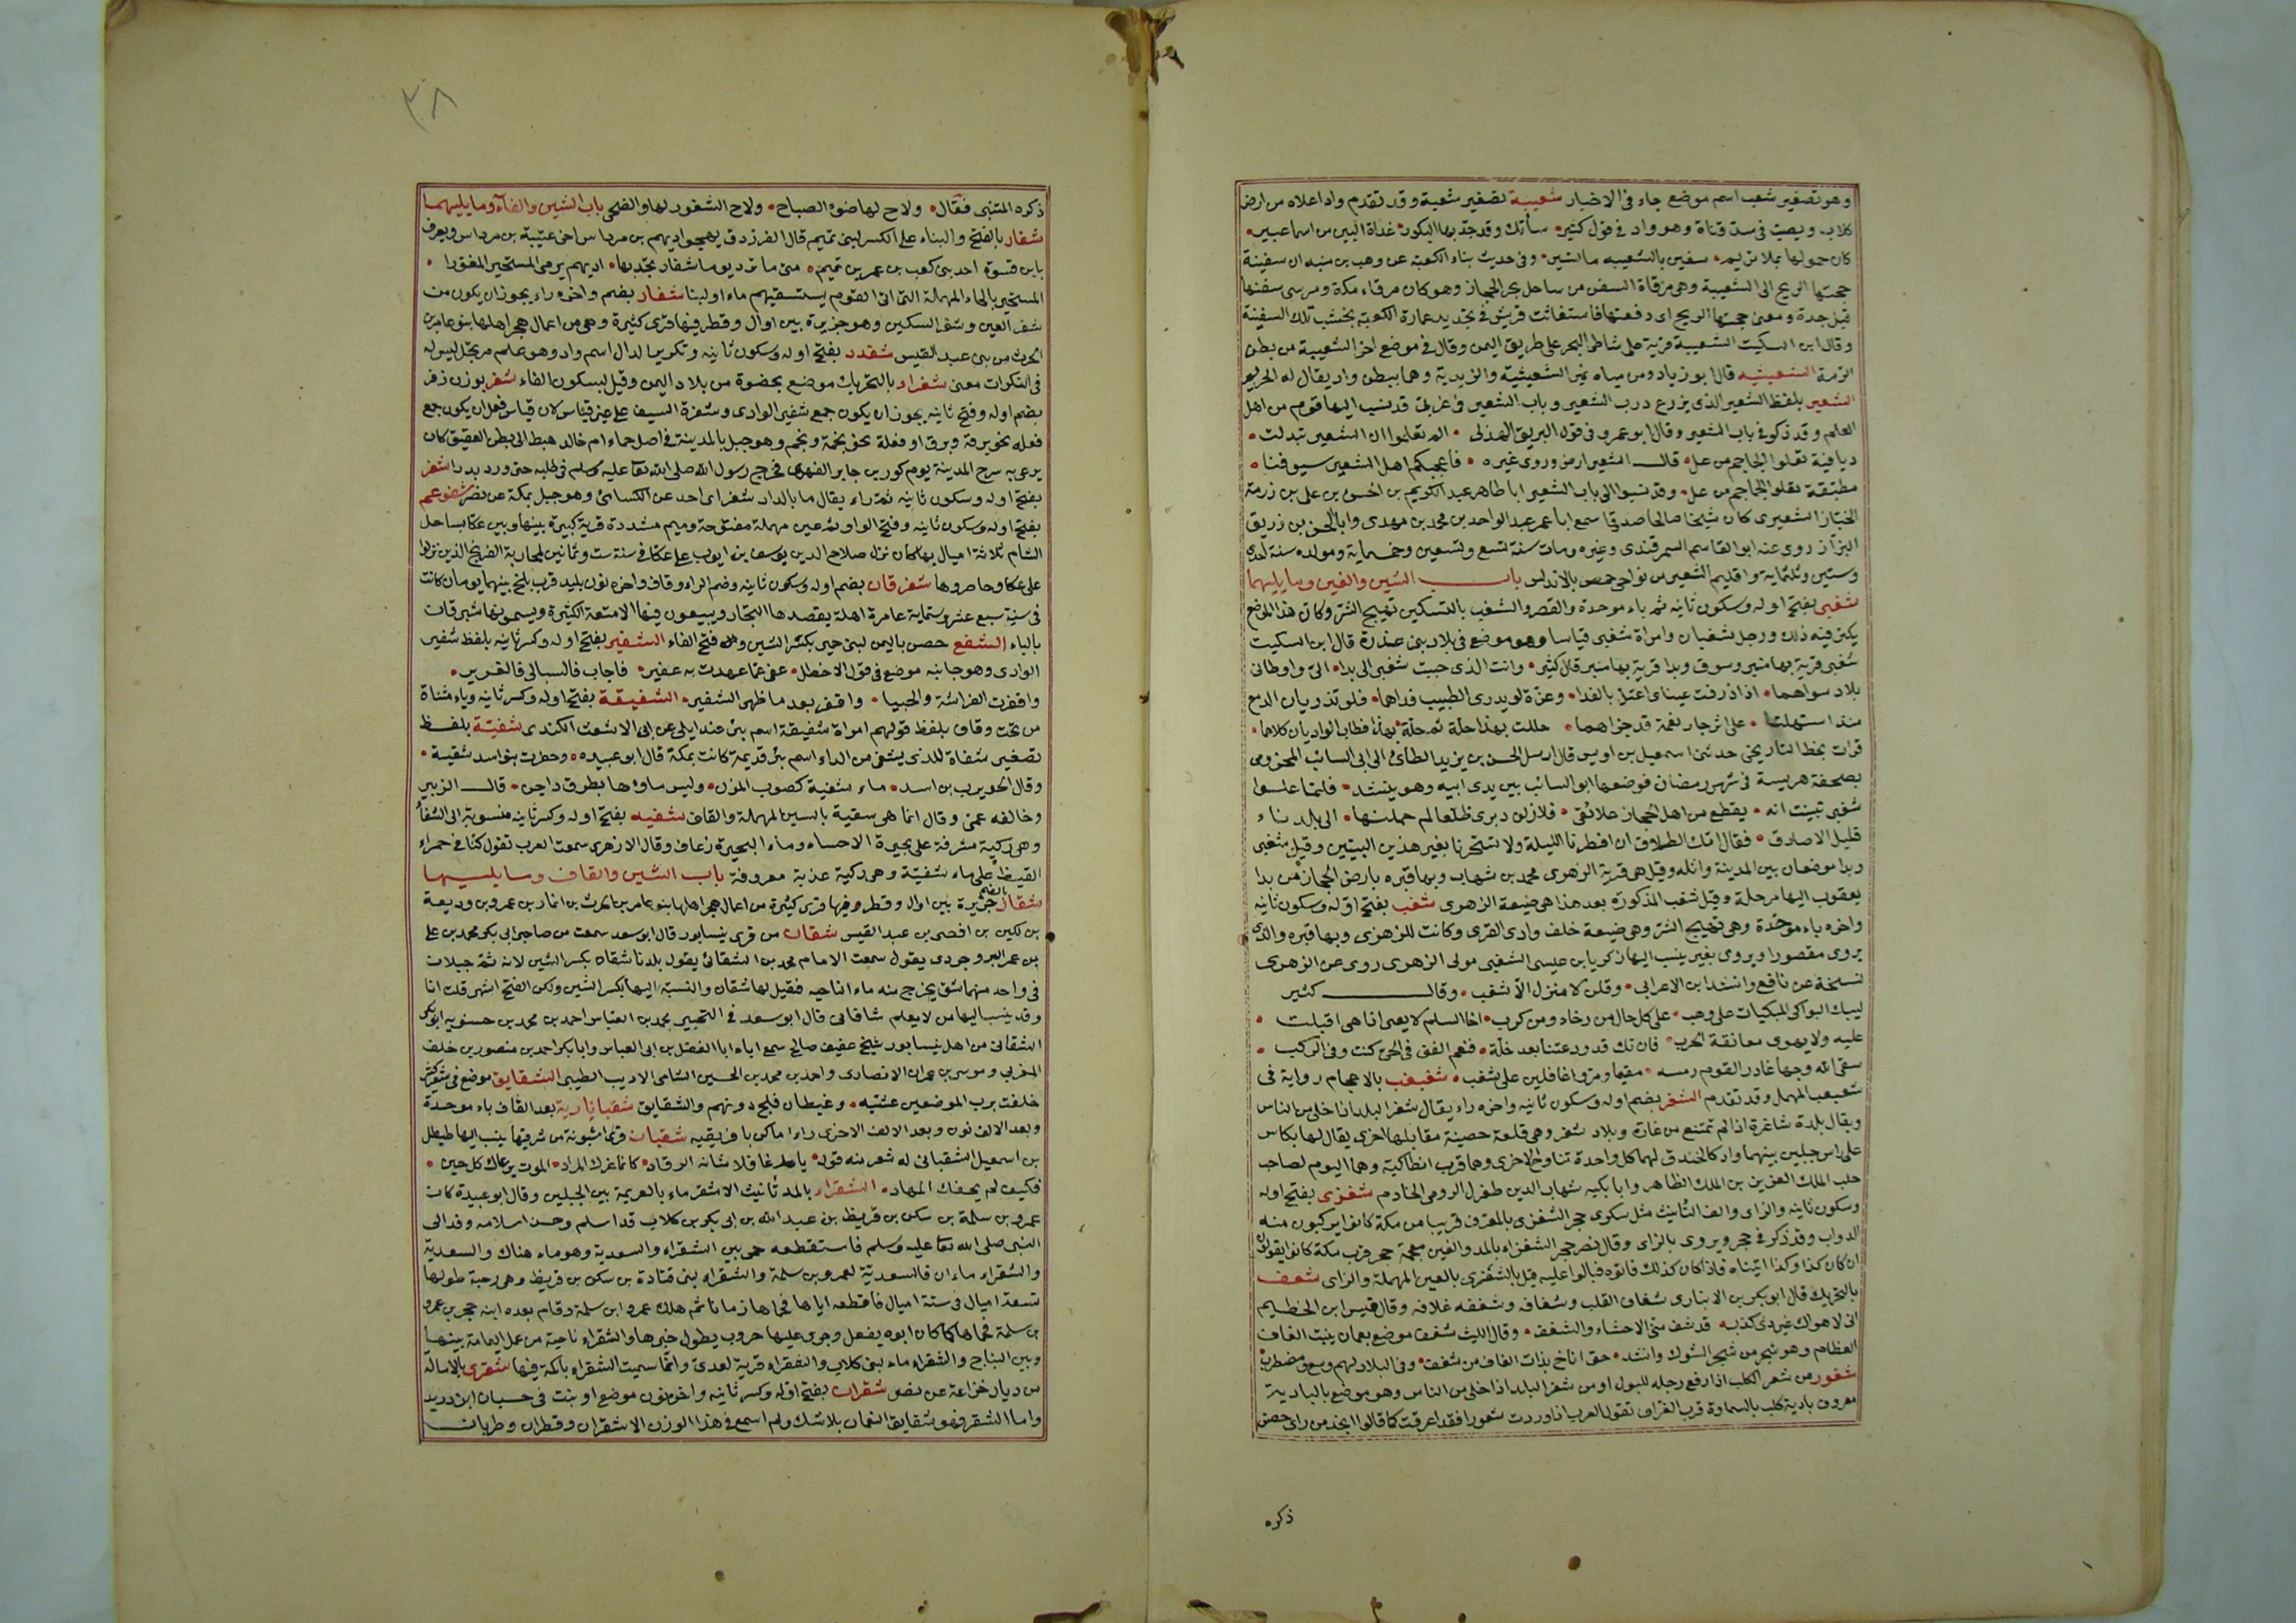 وهو تصغير شعب اسم موضع جاء في الاخبار شعيبة تصغير شعبة وقد تقدم واد اعلاه من ارض
كلاب ويصب في سد قناة وهو واد في قول كثير سأتك وقد جد بها البكور غداة البين من اسما عبير
كان حمولها بملا تريم سفين بالشعيبه ما تسير وفي حديث بناء الكعبة عن وهب بن منبه ان سفينة
حجتها الريح الى الشعيبة وهي مرفاة السفن من ساحل بحر الحجاز وهو كان مرفاء مكة ومرسى سفنها
قبل جدة ومعنى حجتها الريح اى دفعتها فاستعانت قريش في تجديد عمارة الكعبة بخشب تلك السفينة
وقال ابن السكيت الشعيبة قرية على شاطى البحر على طريق اليمن وقال في موضع اخر الشعيبة من بطن
الرمة الشعيثيه قال ابو زياد ومن مياه نمير الشعيثية والزيدية وهما ببطن واد يقال له الحريم
الشعير بلفظ الشعير الذى يزرع درب الشعير وباب الشعير في غربى قد نسب اليها قوم من اهل
العلم وقد ذكر في باب الشعير وقال ابو عمرو في قول البريق الهذلى الم تعلموا ان الشعير تبدلت
ديافية تعلوا الجماجم من عل قال الشعير ارض وروى غيره فاعجبكم اهل الشعير سيوفنا
مطبقة تعلوا الجماجم من عل وقد نسبوا الى باب الشعير ابا طاهر عبد الكريم بن الحسن بن على بن زرمة
الخباز الشعيرى كان شيخا صالحا صدوقا سمع ابا عمر عبد الواحد بن محمد بن مهدى وابا الحسن بن زريق
البزاز روى عنه ابو القاسم السمرقندى وغيره ومات سنة تسع وتسعين وخمسماية ومولده سنة احدى
وستين وثلثماية واقليم الشعير من نواحي حمص بالاندلس باب الشين والغين وما يليهما
شغبى بفتح اوله وسكون ثانيه ثم باء موحدة والقصر والشغب بالتسكين تهييج الشر وكان هذا الموضع
يكثر فيه ذلك ورجل شغبان وامراة شغبى قياسا وهو موضع في بلاد بنى عذرة قال ابن السكيت
شغبى قرية بها منبر وسوق وبدا قرية بها منبر قال كثير وانت الذى حببت شغبى الى بدا الى واوطانى
بلاد سواهما اذا ذرفت عيناى اعتل بالقذا وعزة لو يدرى الطبيب قذاهما فلو تذريان الدمع
منذ استهلتا على اثر جار نعمة قد جزاهما حللت بهذا حلة ثم حلة بهذا فطاب الواديان كلاهما
قرات بخط التاريخى حدثنى اسمعيل بن اويس قال ارسل الحسن بن يزيد الطائى الى ابى السائب المخزومى
بصحفة هريسة في شهر رمضان فوضعها ابو السائب بين يدى ابيه وهو ينشد فلما علموا
شغبى تبينت انه يقطع من اهل الحجاز علائقى فلا زلن دبرى ظلعا لم حملنها الى بلد ناء
قليل الاصادق فقال امك الطلاق ان افطرنا الليلة ولا تسحرنا بغير هذين البيتين وقيل شغبى
وبدا موضعان بين المدينة وايله وقيل هى قرية الزهرى محمد بن شهاب وبها قبره بارض الحجاز من بدا
يعقوب اليها مرحلة وقيل شغب المذكورة بعد هذا هى ضيعة الزهرى شغب بفتح اوله وسكون ثانيه
واخره باء موحدة وهى تهييج الشر وهى ضيعة خلف وادى القرى وكانت للزهرى وبها قبره والذى
يروى مقصورا ويروى بغير ينسب اليها زكريا بن عيسى الشغبى مولى الزهرى روى عن الزهرى
نسخة عن نافع وانشد ابن الاعرابى وقلن لا منزل الا شغب وقال كثير
ليبك البواكى المبكيات على وهب على كل حال من رخاء ومن كرب اخا السلم لا يعيى اذا هى اقبلت
عليه ولا يهوى معانقة الحرب فان تك قد ودعتنا بعد خلة فنعم الفتى في الحى كنت وفي الركب
سقى الله وجها غادر القوم رمسه مقيما ومروا غافلين على شغب شغبغب بالاعجام رواية في
شعبعب المهمل وقد تقدم الشغر بضم اوله وسكون ثانيه واخره راء يقال شغر البلد اذا خلى من الناس
ويقال بلدة شاغرة اذا لم تمتنع من غارة وبلاد شغر وهى قلعة حصينة مقابلها اخرى يقال لها بكاس
على راس جبلين بينهما واد كالخندق لهما كل واحدة تناوح الاخرى وهما قرب انطاكية وهما اليوم لصاحب
حلب الملك العزيز بن الملك الظاهر واتابكيه شهاب الدين طغرل الرومى الخادم شغزى بفتح اوله
وسكون ثانيه والزاى والف التانيث مثل سكرى حجر الشغزى بالمعرف قريبا من مكة كانوا يركبون منه
الدواب وقد ذكر في حجر ويروى بالزاى وقال نصر حجر الشغزاء بالمد والغين معجمة حجر قرب مكة كانوا يقولون
ان كان كذا وكذا اتيناه فاذا كان كذلك فاتوه فبالوا عليه قيل بالشغزى بالعين المهملة والزاى شغف
بالتحريك قال ابو بكر بن الانبارى شغاف القلب وشغافه وشغفه غلافه وقال قيس ابن الخطيم
انى لاهواك غير ذى كذب قد شف منى الاحشاء والشغف وقال الليث شغف موضع بعمان ينبت الغاف
العظام وهو شجر من شجر الشوك وانشد حتى اناخ بذات الغاف من شغف وفي البلاد لهم وسع ومضطرب
شغور من شغر الكلب اذا رفع رجله للبول او من شغر البلد اذا خلى من الناس وهو موضع بالبادية
معروف بادية كلب بالسماوة قرب العراق تقول العرب اذا وردت شغورا فقد اعرقت كما قالوا انجد من راى حضن
ذكره
٣٨
ذكره المتنبى فقال ولاح لها ضوء الصباح ولاح الشغور لها والضحى باب الشين والفاء وما يليهما
شفار بالفتح والبناء على الكسر لبنى تميم قال الفرزدق يهجو اديهم بن مرداس اخى عتيبة بن مرداس ويعرف
بابن فسوة احد بنى كعب بن عمرو بن تميم متى ما ترد يوما شفار تجد بها اديهم يرمى المستحير المغورا
المستحير بالحاء المهملة التى اتى القوم يستسقيهم ماء او لبنا شفار بضم واخره راء يجوز ان يكون من
شفر العين وشفر السكين وهو جزيرة بين اوال وقطر فيها قرى كثيرة وهى من اعمال هجر اهلها بنو عامر بن
الحرث من بنى عبد القيس شفدد بفتح اوله وسكون ثانيه وتكرير الدال اسم واد وهو علم مرتجل ليس له
في النكرات معنى شفراد بالتحريك موضع بحضوة من بلاد اليمن وقيل بسكون الفاء شفر بوزن زفر
بضم اوله وفتح ثانيه يجوز ان يكون جمع شفير الوادى وشفرة السيف على غير قياس لان قياس فعل ان يكون جمع
فعله نحو برقة وبرق او فعلة نحو تخمة وتخم وهو جبل بالمدينة في اصل حماء ام خالد هبط الى بطن العقيق كان
يرعى به سرح المدينة يوم كرز بن جابر الفهرى فخرج رسول الله صلى الله تعا عليه وسلم في طلبه حتى ورد بدرا شفر
بفتح اوله وسكون ثانيه ثم راء يقال ما بالدار شفر اى احد عن الكسائى وهو جبل بمكة عن نصر شفرعم
بفتح اوله وسكون ثانيه وفتح الواو ثم عين مهملة مفتوحة وميم مشددة قرية كبيرة بينها وبين عكا بساحل
الشام ثلاثة اميال بها كان نزل صلاح الدين يوسف بن ايوب على عكا في سنة ست وثمانين لمحاربة الفرنج الذين نزلوا
على عكا وحاصروها شفرقان بضم اوله وسكون ثانيه وضم الراء وقاف واخره نون بليد قرب بلخ بينهما يومان كانت
في سنة سبع عشر وستماية عامرة اهلة يقصدها التجار ويبيعون فيها الامتعة الكثيرة ويسمونها شبرقان
بالباء الشفع حصن باليمن لبنى حبى بكسر الشين فتح الفاء الشفير بفتح اوله وكسر ثانيه بلفظ شفير
الوادى وهو جانبه موضع في قول الاخطل عفى مما عهدت به عفير فاجاب فالسبالى فالعوير
واقفرت الفراشة والحبيا واقفر بعد ما ظهر الشفير الشفيقة بفتح اوله وكسر ثانيه وياء مثناة
من تحت وقاف بلفظ قولهم امراة شفيقة اسم بئر عند ابلى عن ابى الاشعث الكندى شفية بلفظ
تصغير شفاة للذى يشفى من الداء اسم بئر قديمة كانت بمكة قال ابو عبيده وحفرت بنو اسد شفية
وقال الحويرث بن اسد ماء شفية كصوب المزن وليس ماؤها بطرق داجن قال الزبير
وخالفه عمى وقال انما هى سقية بالسين المهملة والقاف شفيه بفتح اوله وكسر ثانيه منسوبة الى الشفا
وهى ركية مشرفة على بحيرة الاحساء وماء البحيرة زعاف وقال الازهرى سمعت العرب تقول كنا في حمراء
القيظ على ماء شفية وهى ركية عذبة معروفة باب الشين والقاف وما يليهما
شقار بالفتح جزيرة بين اوال وقطر وفيها قرى كثيرة من اعمال هجر اهلها بنو عامر بن الحرث بن انمار بن عمرو بن وديعة
بن لكيز بن افصى بن عبد القيس شقان من قرى نيسابور قال ابو سعد سمعت من صاحبى ابى بكر محمد بن على
بن عمر البروجردى يقول سمعت الامام محمد بن الشقانى يقول بلدنا شقان بكسر الشين لان ثمة جبلان
في واحد منهما شق يخرج منه ماء الناحيه فقيل لها شقان والنسبة اليها بكسر الشين ولكن الفتح اشهر قلت انا
وقد ينسب اليها من لا يعلم شاقانى قال ابو سعد في التحبير محمد بن العباس احمد بن محمد بن حسنويه ابو بكر
الشقانى من اهل نيسابور شيخ عفيف صالح سمع اباه ابا الفضل بن ابى العباس وابا بكر احمد بن منصور بن خلف
المغربى وموسى بن عمران الانصارى واحد بن محمد بن الحسين الشامى الاديب الطيبى الشقايق موضع في شعر كثير
خلفت برب الموضعين عشيه وغيطان فلج دونهم والشقايق شقبانارية بعد القاف باء موحدة
وبعد الالف نون وبعد الالف الاخرى راء اماكن بافريقيه شقبان قرية اشبونة من شرقيها ينسب اليها طيطل
بن اسمعيل الشقبانى له شعر منه قوله يا غافلا شانه الرقاد كانما غرك المراد الموت يرعاك كل حين
فكيف لم يجفك المهاد الشقراء بالمد تأنيث الاشقر ماء بالعريمة بين الجبلين وقال ابو عبيدة كان
عمرو بن سلمة بن سكن بن قريظ بن عبد الله بن ابى بكر بن كلاب قد اسلم وحسن اسلامه وفد الى
النبى صلى الله تعا عليه وسلم فاستقطعه حمى بين الشقراء والسعدية وهو ماء هناك والسعدية
والشقراء ماءان فالسعدية لعمرو بن سلمة والشقراء لبنى قتادة بن سكن بن قريظ وهى رحبة طولها
تسعة اميال في ستة اميال فاقطعه اياها فحماها زمانا ثم هلك عمرو ابن سلمة وقام بعده ابنه حجر بن عمرو
بن سلمة فحماها كما كان ابوه يفعل وجرى عليها حروب يطول خبرها والشقراء ناحية من عمل اليمامة بينها
وبين النباج والشقراء ماء لبنى كلاب والشقراء قرية لعدى وانما سميت الشقراء باكمة فيها شقرى بالاماله
من ديار خزاعة عن نصر شقران بفتح اوله وكسر ثانيه واخره نون موضع او بنت في حسبان ابن دريد
واما الشقر فهو شقايق النعمان بلا شك ولم اسمع في هذا الوزن الا شقران وقطران وظربان